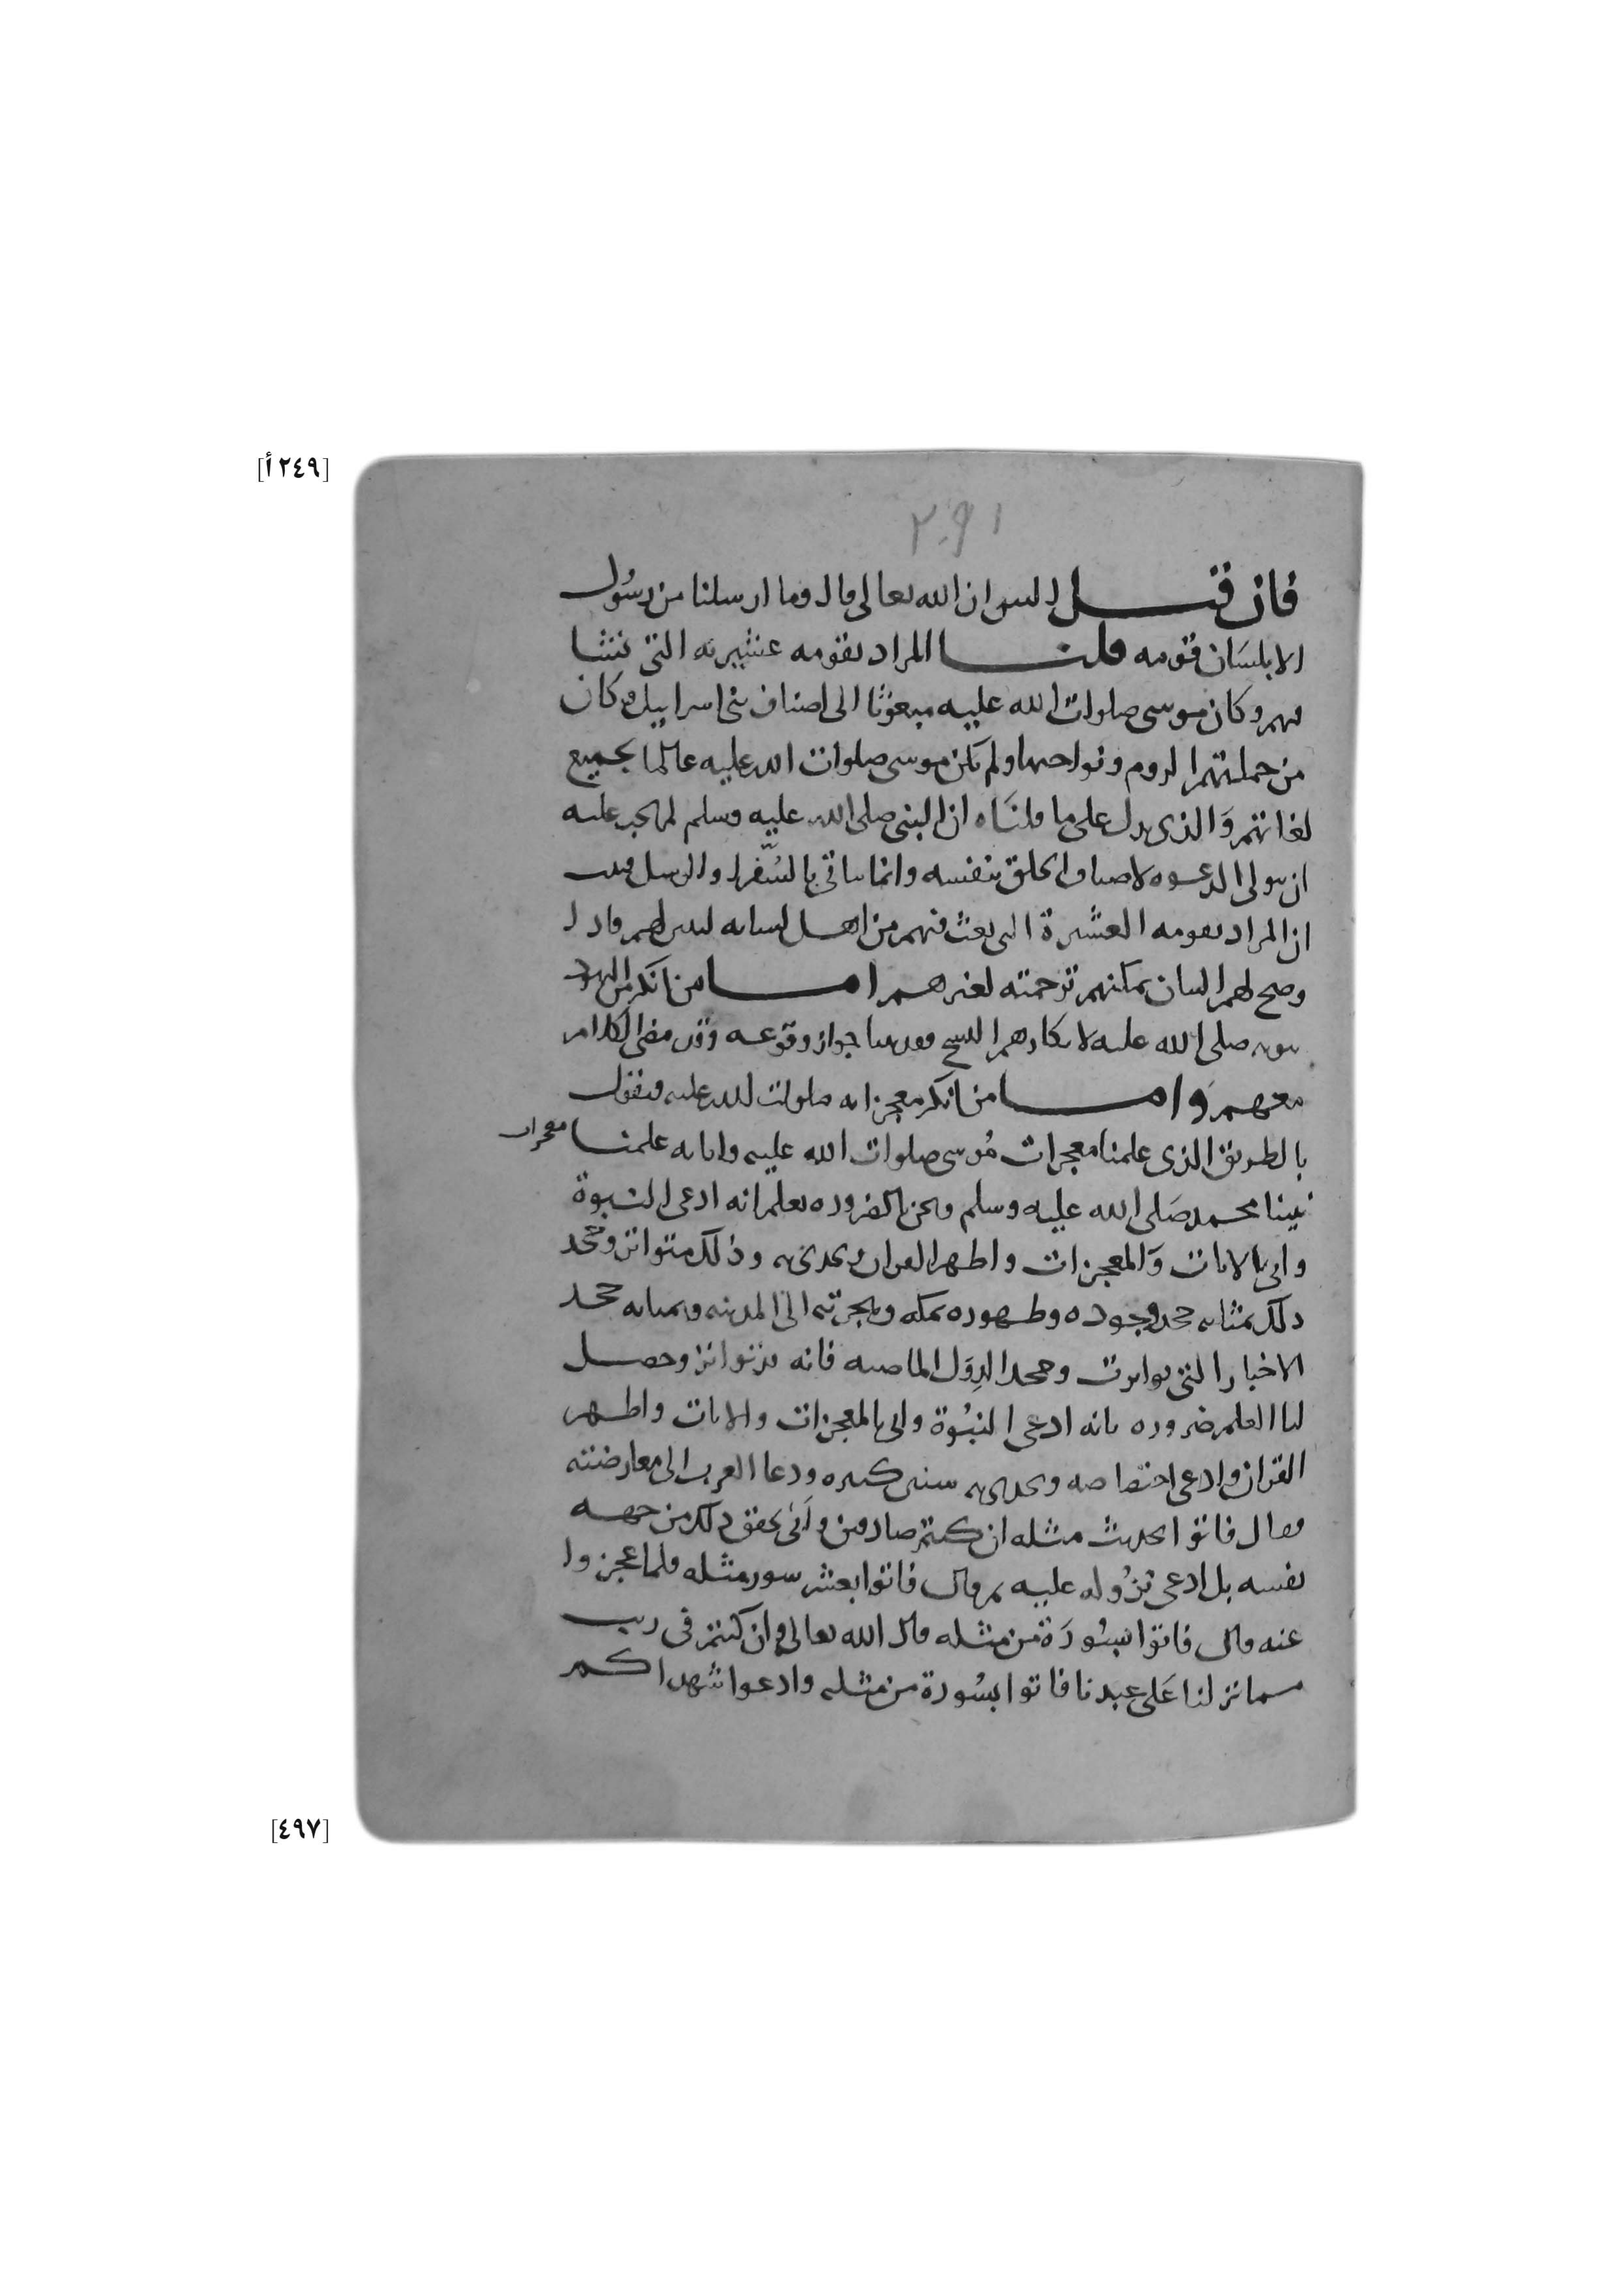 [٢٤٩ أ]
٢٠٩١
فان قيل اليس ان الله تعالى قال وما ارسلنا من رسول
الا بلسان قومه قلنا المراد بقومه عشيرته التي نشا
فيهم وكان موسى صلوات الله عليه مبعوثا الى اصناف بني اسراييل وكان
من جملتهم الروم ونواحيها ولم يكن موسى صلوات الله عليه عالما بجميع
لغاتهم والذي يدل على ما قلناه ان النبي صلى الله عليه وسلم لم يجب عليه
ان يتولى الدعوه لاصناف الخلق بنفسه وانما ياتي بالسفرا والرسل فثبت
ان المراد بقومه العشيرة التي بعث فيهم من اهل لسانه ليبين لهم فاذا
وضح لهم البيان يمكنهم ترجمته لغيرهم اما من انكر من اليهود
نبوته صلى الله عليه لانكارهم النسخ فقد بينا جواز وقوعه وقد مضى الكلام
معهم واما من انكر معجزاته صلوات الله عليه فنقول
بالطريق الذي علمنا معجزات موسى صلوات الله عليه واياته علمنا معجزات
نبينا محمد صلى الله عليه وسلم ونحن بالضروره نعلم انه ادعى النبوة
واتى بالايات والمعجزات واظهر القران وتحدى به وذلك متواتر وجحد
ذلك بمثابه جحد وجوده وظهوره بمكه وهجرته الى المدينه وبمثابه جحد
الاخبار التي تواترت وجحد الدول الماضيه فانه قد تواتر وحصل
لنا العلم ضروره بانه ادعى النبوة واتى بالمعجزات والايات واظهر
القران وادعى اختصاصه وتحدى به سنين كثيره ودعا العرب الى معارضته
فقال فاتوا بحديث مثله ان كنتم صادقين واني تحقق ذلك من جهه
نفسه بل ادعى نزوله عليه ثم قال فاتوا بعشر سور مثله فلما عجزوا
عنه قال فاتوا بسورة من مثله قال الله تعالى وان كنتم في ريب
مما نزلنا على عبدنا فاتوا بسورة من مثله وادعوا شهداكم
[٤٩٧]